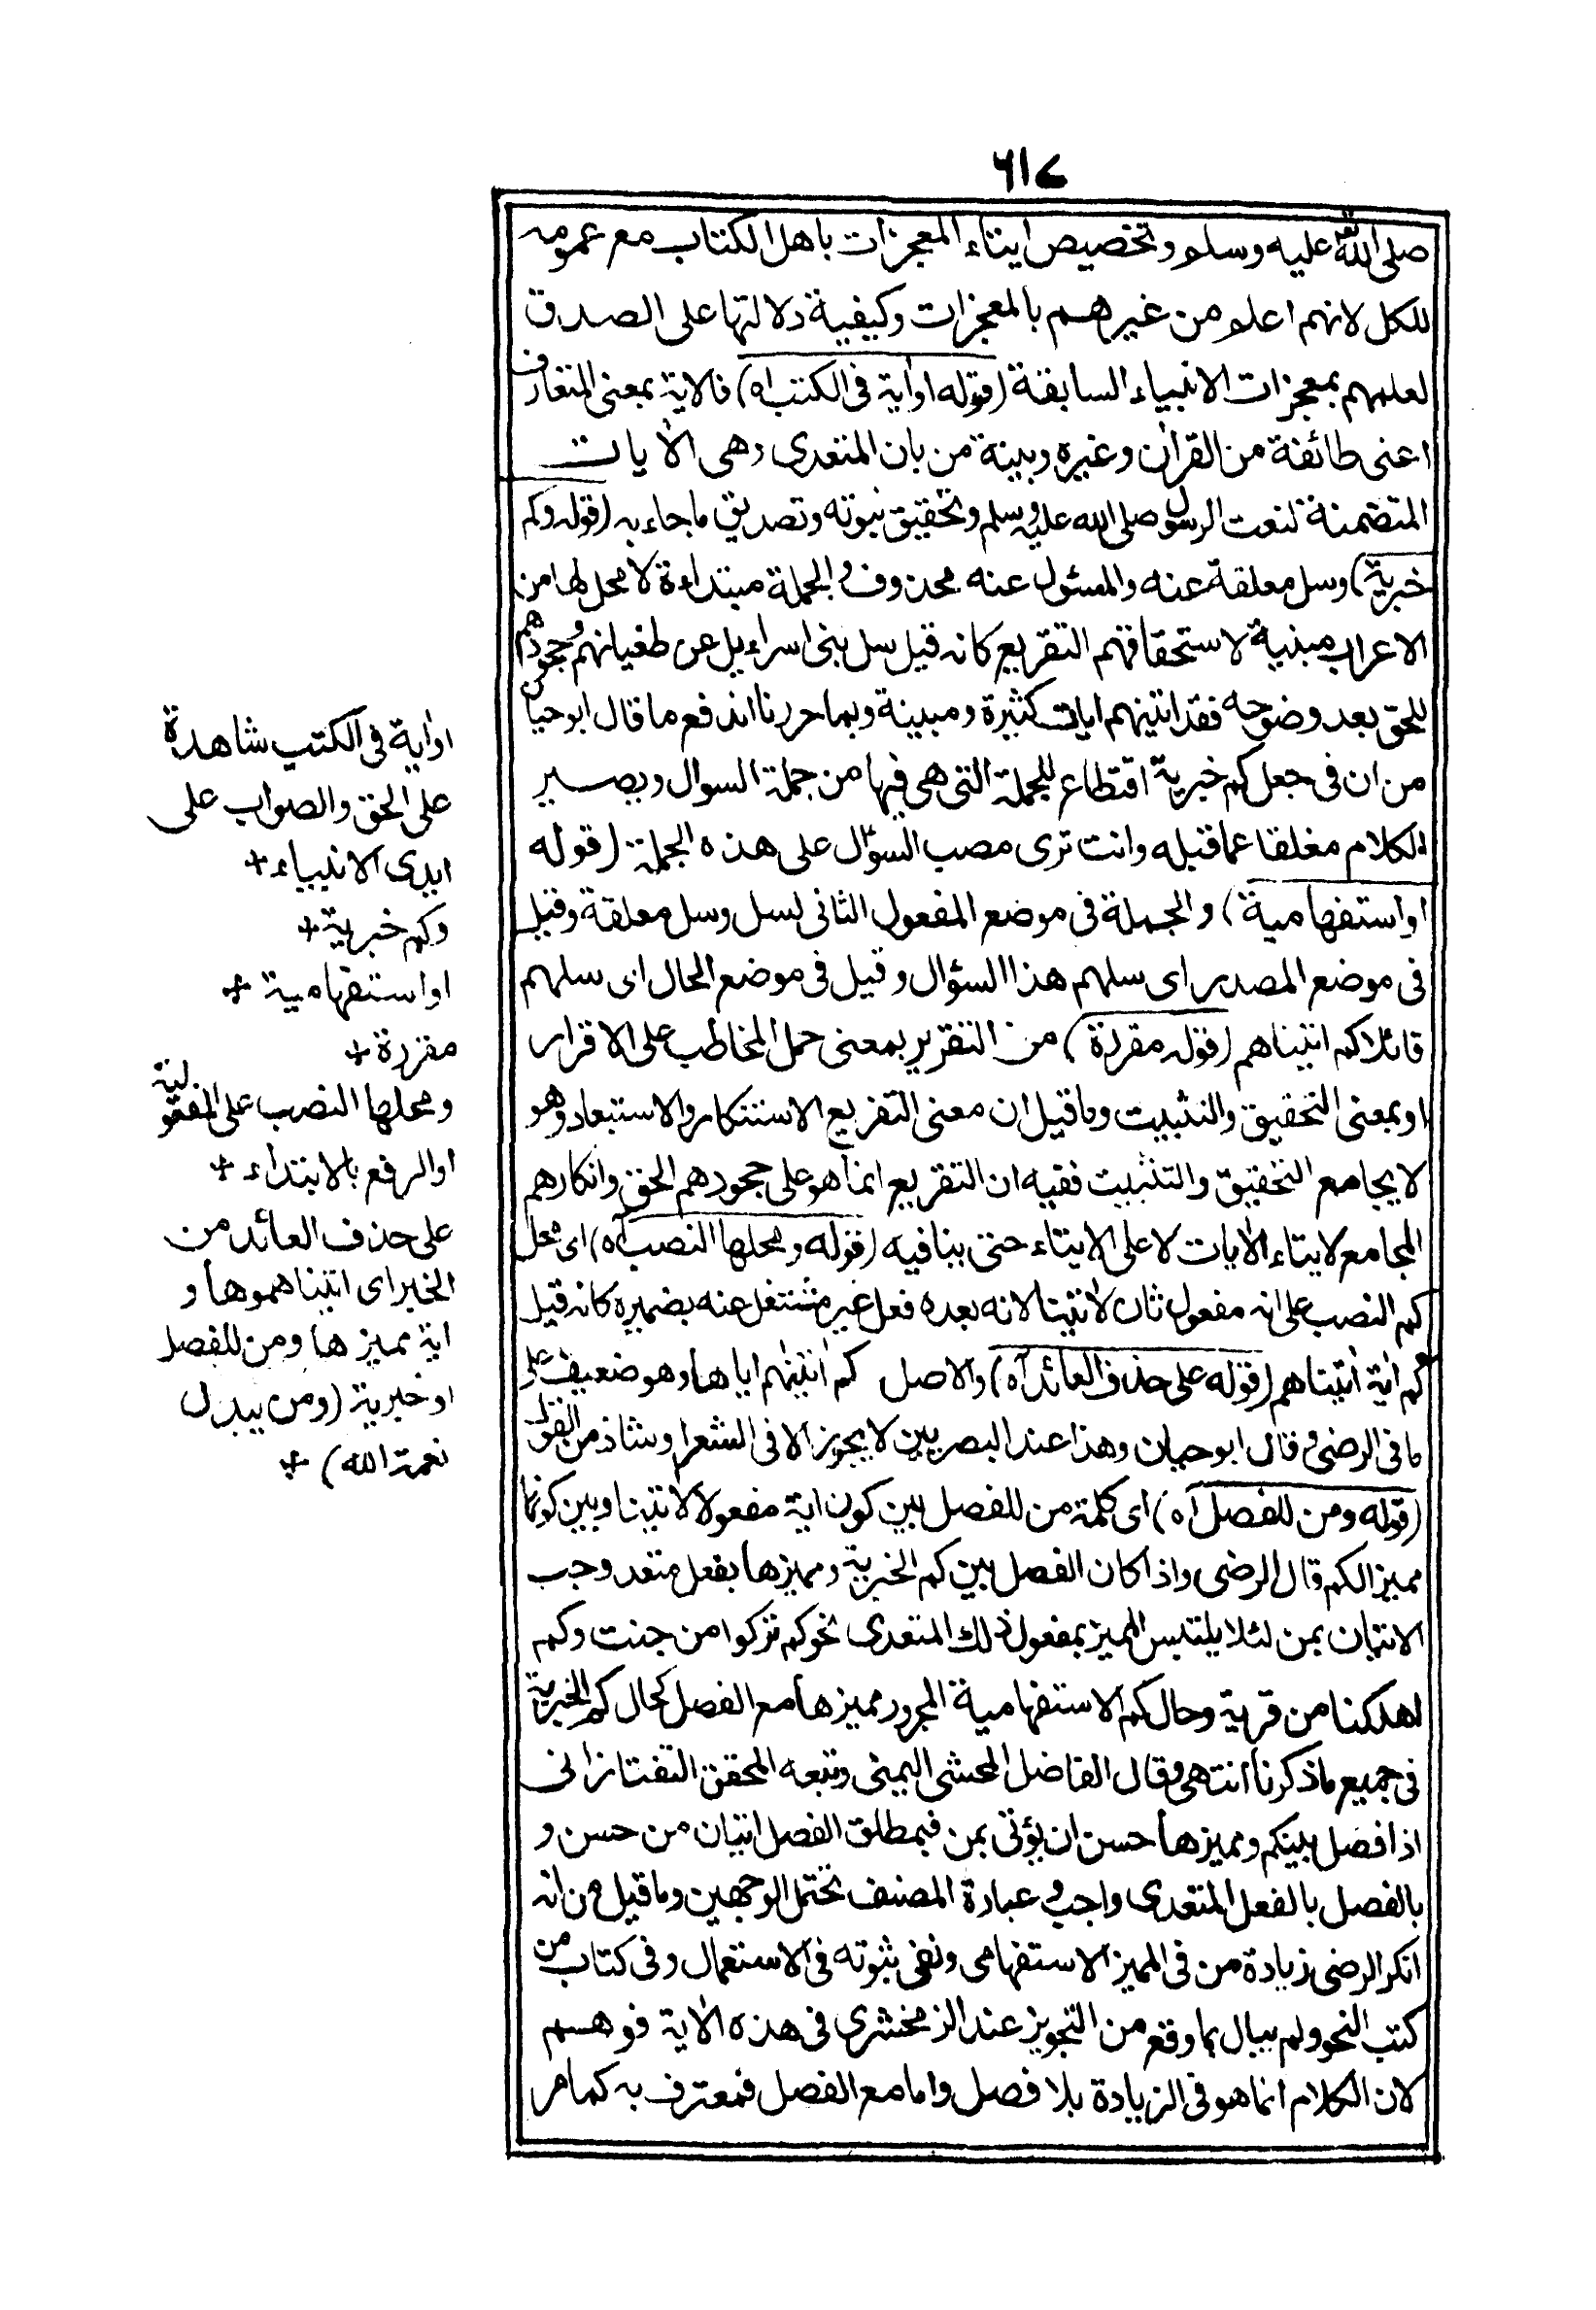 ٦١٧
صلى الله عليه وسلم وتخصيص ايتاء المعجزات باهل الكتاب مع عمومه
للكل لانهم اعلم من غيرهم بالمعجزات وكيفية دلالتها على الصدق
لعلمهم بمعجزات الانبياء السابقة (قوله اوآية فى الكتب اه) فالاية بمعنى المتعارف
اعنى طائفة من القرآن وغيره وبينة من بان المتعدى وهى الآيات
المتضمنة لنعت الرسول صلى الله عليه وسلم وتحقيق نبوته وتصديق ماجاء به (قوله وكم
خبرية) وسل معلقة عنه والمسئول عنه محذوف والجملة مبتداءة لا محل لها من
الاعراب مبنية لاستحقاقهم التقريع كانه قيل سل بنى اسراءيل عن طغيانهم وجحودهم
للحق بعد وضوحه فقد اتينهم ايات كثيرة ومبينة وبما حررنا اندفع ما قال ابو حيان
من ان فى جعل كم خبرية اقتطاع للجملة التى هى فيها من جملة السوال ويصير
الكلام مغلقا عما قبله وانت ترى مصب السؤال على هذه الجملة (قوله
او استفهامية) والجملة فى موضع المفعول الثانى لسل وسل معلقة وقيل
فى موضع المصدر اى سلهم هذا السؤال وقيل فى موضع الحال اى سلهم
قائلا كم اتيناهم (قوله مقررة) من التقرير بمعنى حمل المخاطب على الاقرار
او بمعنى التحقيق والتثبيت وما قيل ان معنى التقريع الاستنكار والاستبعاد وهو
لا يجامع التحقيق والتثبيت ففيه ان التقريع انما هو على جحودهم الحق وانكارهم
المجامع لايتاء الآيات لا على الايتاء حتى ينافيه (قوله ومحلها النصب آه) اى محل
كم النصب على انه مفعول ثان لآتينا لانه بعده فعل غير مشتغل عنه بضميره كانه قيل
كم آية اتيناهم (قوله على حذف العائد آه) والاصل كم آتينهم اياها وهو ضعيف على
ما فى الرضى وقال ابو حيان وهذا عند البصريين لا يجوز الا فى الشعر او شاذ من القول
(قوله ومن للفصل آه) اى كلمة من للفصل بين كون اية مفعولا لآتينا وبين كونها
مميز الكم قال الرضى واذا كان الفصل بين كم الخبرية ومميزها بفعل متعد وجب
الاتيان بمن لئلا يلتبس المميز بمفعول ذلك المتعدى نحو كم تركوا من جنت وكم
اهلكنا من قرية وحال كم الاستفهامية المجرور مميزها مع الفصل كحال كم الخبرية
فى جميع ما ذكرنا انتهى وقال الفاضل المحشى اليمنى وتبعه المحقق التفتازانى
اذا فصل بين كم ومميزها حسن ان يؤتى بمن فبمطلق الفصل اتيان من حسن و
بالفصل بالفعل المتعدى واجب وعبارة المصنف تحتمل الوجهين وما قيل من انه
انكر الرضى زيادة من فى المميز الاستفهامى ونفى ثبوته فى الاستعمال وفى كتاب من
كتب النحو ولم يبال بما وقع من التجويز عند الزمخشرى فى هذه الآية فوهم
لان الكلام انما هو فى الزيادة بلا فصل واما مع الفصل فمعترف به كما مر
اوآية فى الكتب شاهدة
على الحق والصواب على
ايدى الانبياء +
وكم خبرية +
او استفهامية +
مقررة +
ومحلها النصب على المفعولية
او الرفع بالابتداء +
على حذف العائد من
الخبر اى اتيناهموها و
اية مميزها ومن للفصل
او خبرية (ومن يبدل
نعمة الله) +